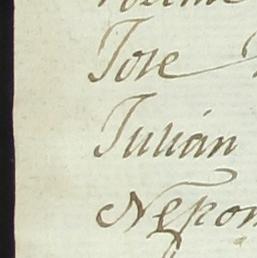 Jose
Julián
Nepom